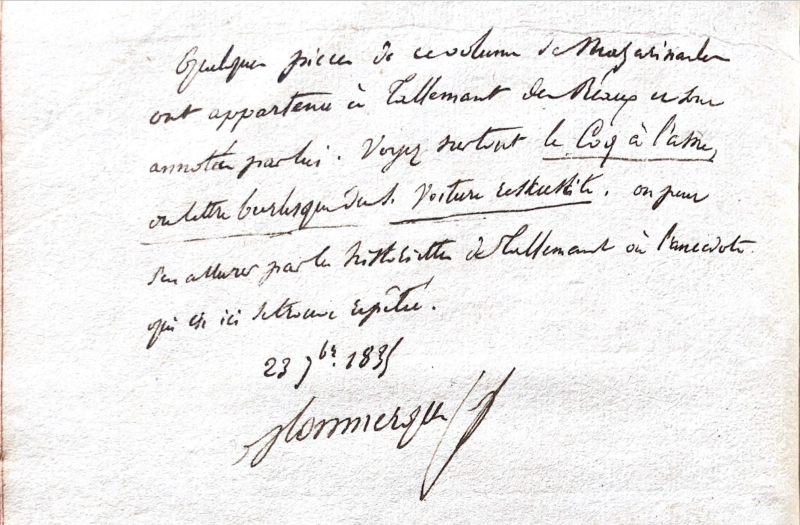 Quelques pièces de ce volume de Mazarinades
ont appartenu à Tallemant des Réaux et sont
annotées par lui. Voyez surtout le Coq à l'asne,
ou lettre burlesque du Sr. Voiture ressuscité. on peut
s'en assurer par les historiettes de Tallemant où l'anecdote
qui est ici se trouve répétée.
23 7bre. 1835
Monmerqué